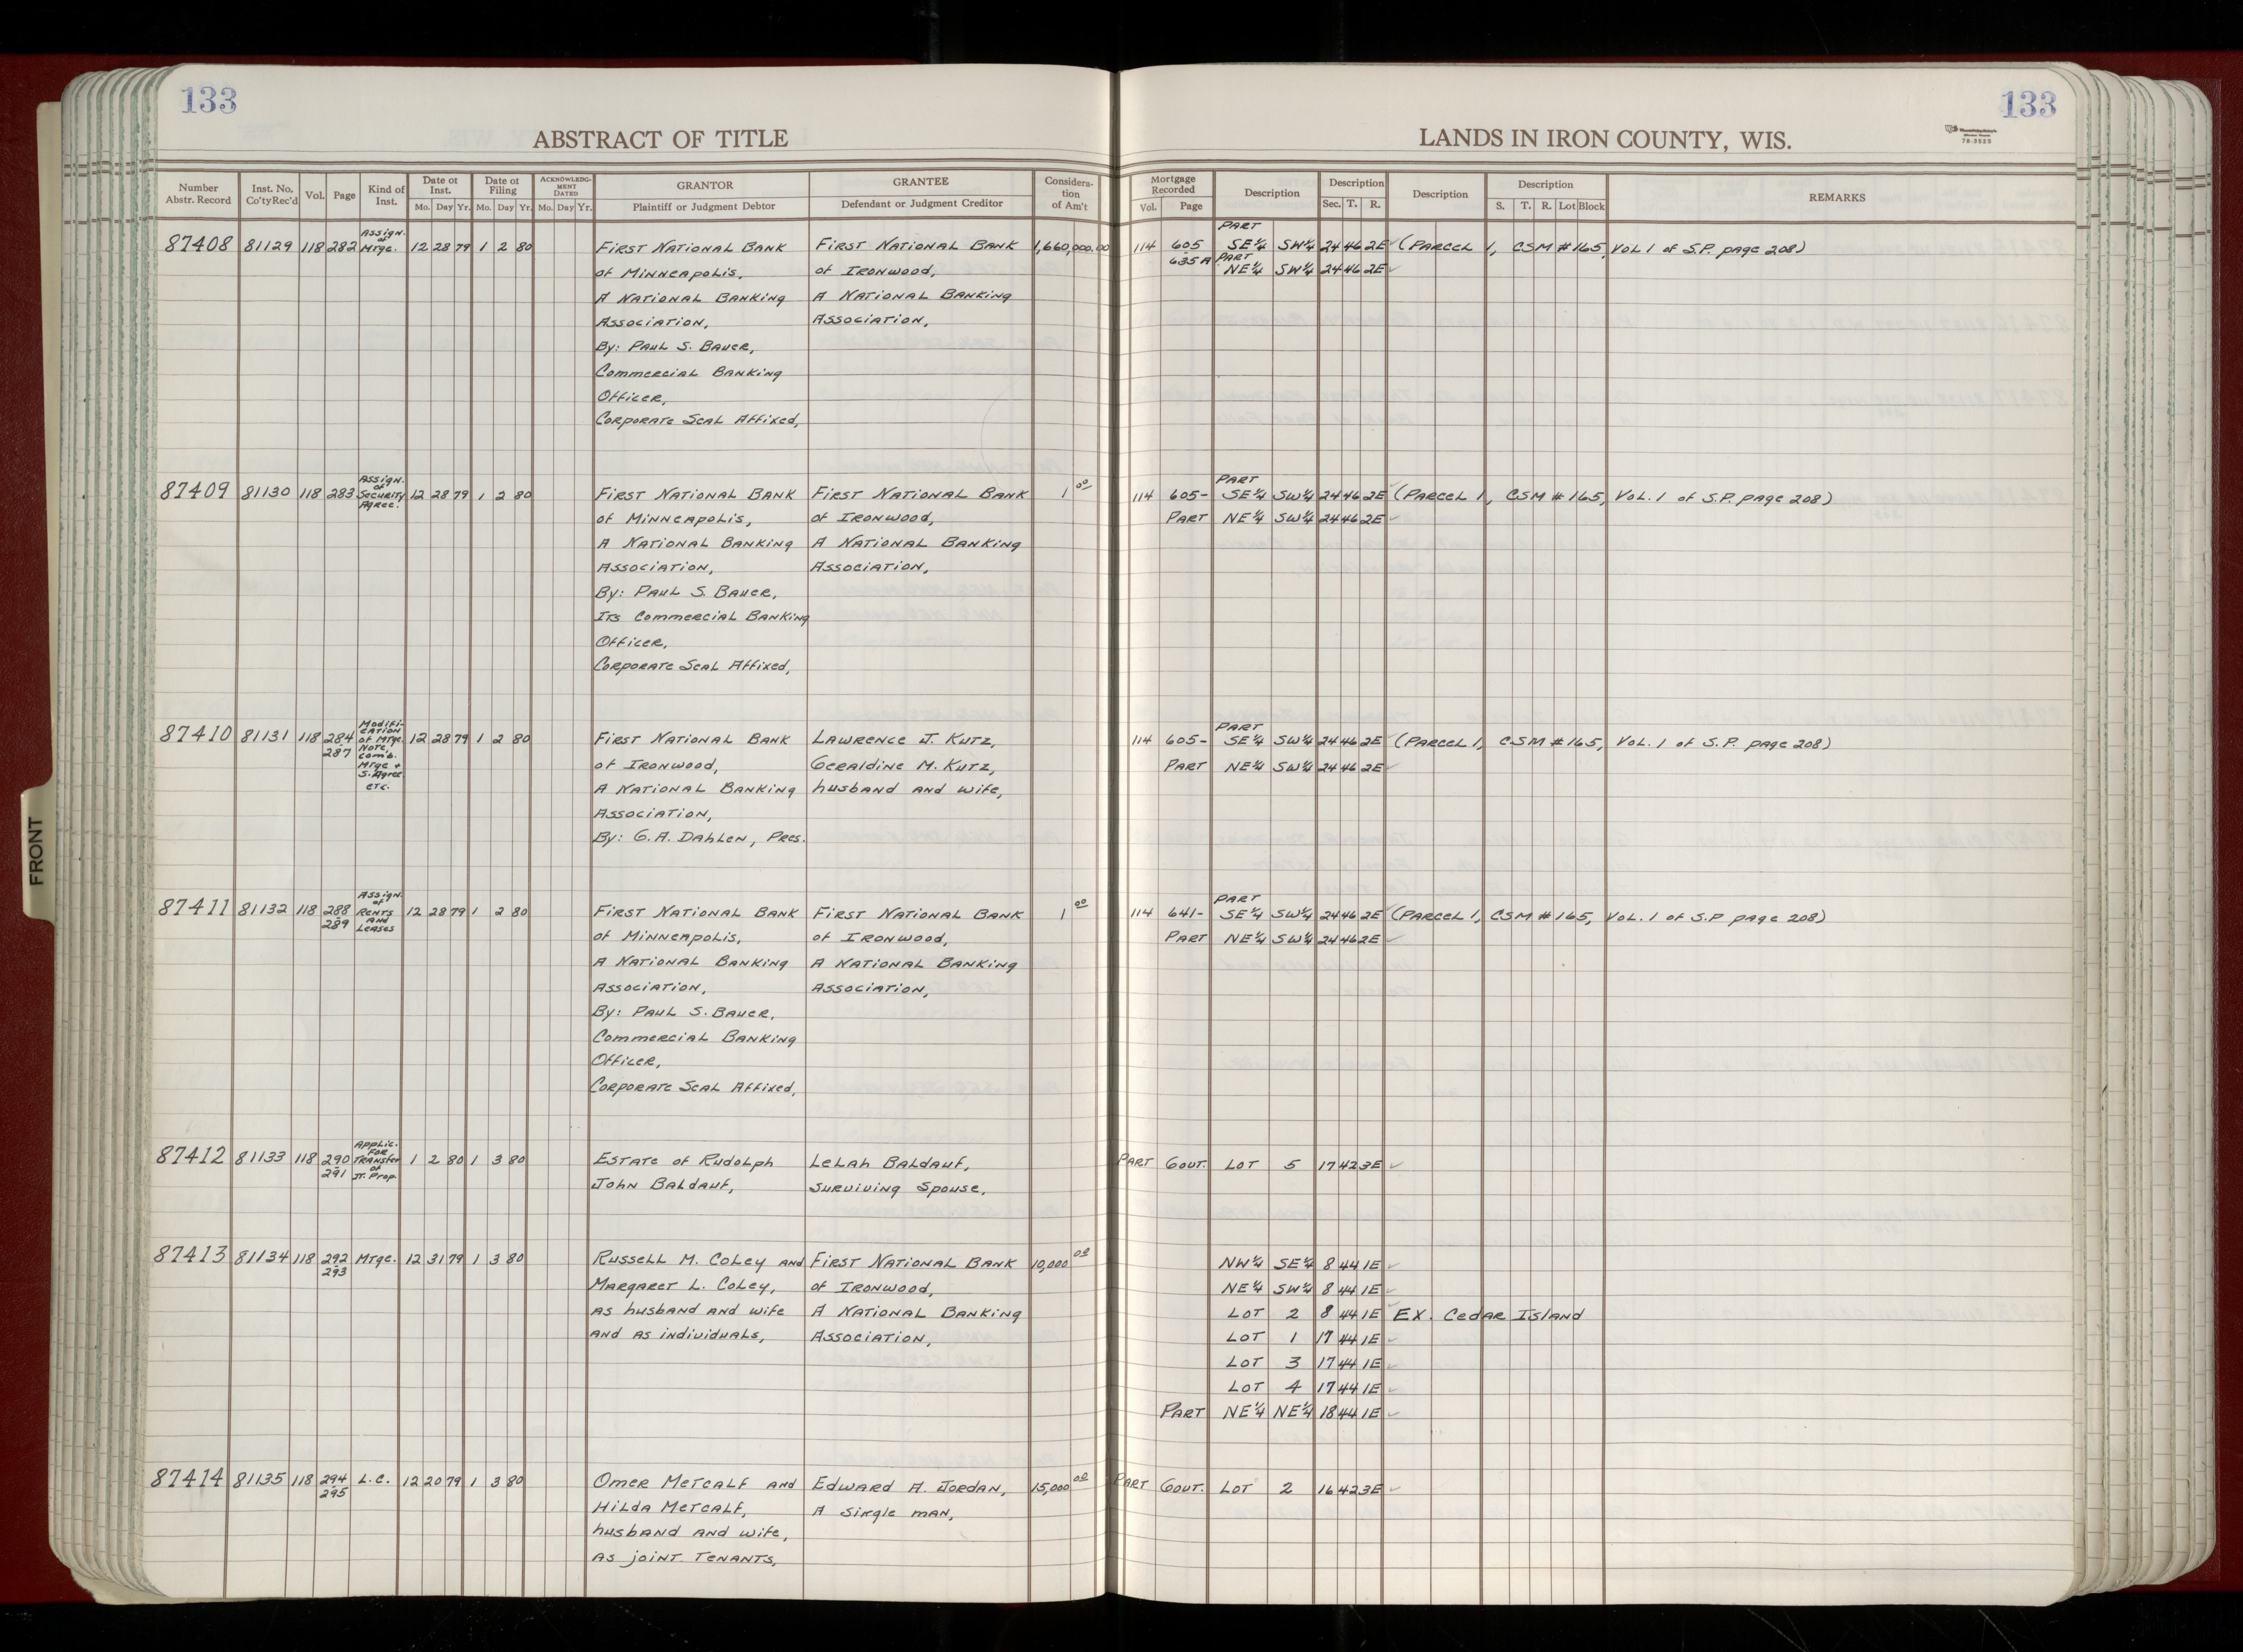 133
133
ABSTRACT OF TITLE
LANDS IN IRON COUNTY, WIS.
78-3525
Number Abstr. Record | Inst. No. Co'ty Rec'd | Vol. | Page | Kind of Inst. | Date of Inst. Mo. Day Yr. | Date of Filing Mo. Day Yr. | ACKNOWLEDGMENT DATED Mo. Day Yr. | GRANTOR Plaintiff or Judgment Debtor | GRANTEE Defendant or Judgment Creditor | Consideration of Am't | Mortgage Recorded Vol. Page | Description | Description Sec. T. R. | Description | Description S. T. R. Lot Block | REMARKS
Assign. of PART
87408 81129 118 282 Mtge. 12 28 79 1 2 80 First National Bank First National Bank 1,660,000.00 114 605 SE¼ SW¼ 24 46 2E (Parcel 1, CSM #165, Vol 1 of S.P. page 208)
of Minneapolis, of Ironwood, 635A PART NE¼ SW¼ 24 46 2E
A National Banking A National Banking
Association, Association,
By: Paul S. Bauer,
Commercial Banking
Officer,
Corporate Seal Affixed,
Assign. of PART
87409 81130 118 283 Security Agree. 12 28 79 1 2 80 First National Bank First National Bank 1 00 114 605- SE¼ SW¼ 24 46 2E (Parcel 1, CSM #165, Vol. 1 of S.P. page 208)
of Minneapolis, of Ironwood, PART NE¼ SW¼ 24 46 2E
A National Banking A National Banking
Association, Association,
By: Paul S. Bauer,
Its Commercial Banking
Officer,
Corporate Seal Affixed,
Modification PART
87410 81131 118 284-287 of Mtge. Note, Comb. Mtge + S. Agree etc. 12 28 79 1 2 80 First National Bank Lawrence J. Kutz, 114 605- SE¼ SW¼ 24 46 2E (Parcel 1, CSM #165, Vol. 1 of S.P. page 208)
of Ironwood, Geraldine M. Kutz, PART NE¼ SW¼ 24 46 2E
A National Banking husband and wife,
Association,
By: G.A. Dahlen, Pres.
Assign. of PART
87411 81132 118 288-289 Rents and Leases 12 28 79 1 2 80 First National Bank First National Bank 1 00 114 641- SE¼ SW¼ 24 46 2E (Parcel 1, CSM #165, Vol. 1 of S.P page 208)
of Minneapolis, of Ironwood, PART NE¼ SW¼ 24 46 2E
A National Banking A National Banking
Association, Association,
By: Paul S. Bauer,
Commercial Banking
Officer,
Corporate Seal Affixed,
Applic. for
87412 81133 118 290-291 Transfer of Jt. Prop. 1 2 80 1 3 80 Estate of Rudolph Lelah Baldauf, PART Gout. Lot 5 17 42 3E
John Baldauf, surviving spouse,
87413 81134 118 292-293 Mtge. 12 31 79 1 3 80 Russell M. Coley and First National Bank 10,000 00 NW¼ SE¼ 8 44 1E
Margaret L. Coley, of Ironwood, NE¼ SW¼ 8 44 1E
as husband and wife A National Banking Lot 2 8 44 1E EX. Cedar Island
and as individuals, Association, Lot 1 17 44 1E
Lot 3 17 44 1E
Lot 4 17 44 1E
PART NE¼ NE¼ 18 44 1E
87414 81135 118 294-295 L.C. 12 20 79 1 3 80 Omer Metcalf and Edward A. Jordan, 15,000 00 PART Gout. Lot 2 16 42 3E
Hilda Metcalf, A single man,
husband and wife,
as joint tenants,
FRONT